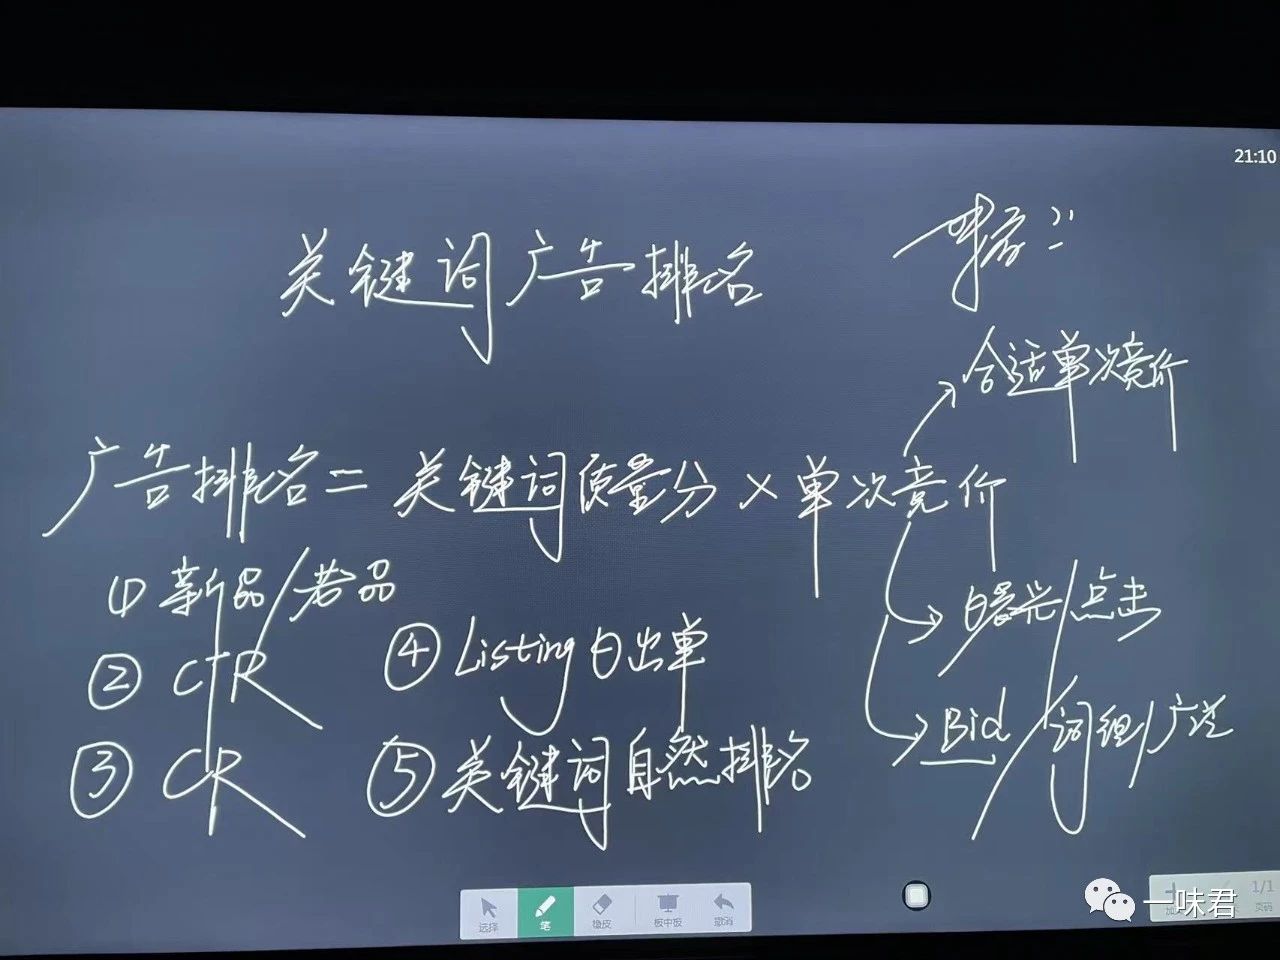 21:10
关键词广告排名
合适单次竞价
广告排名=关键词质量分×单次竞价
① 新品/老品
② CTR
③ CR
④ Listing日出单
⑤ 关键词自然排名
曝光/点击
Bid/词组/广泛
选择
笔
橡皮
板中板
撤消
1/1
页码
一味君